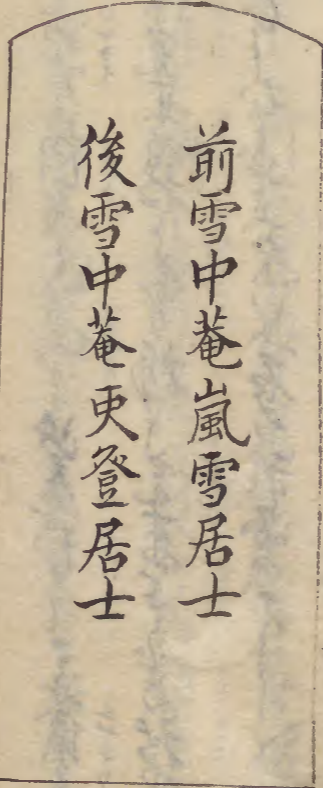 前雪中菴嵐雪居士
後雪中菴吏登居士